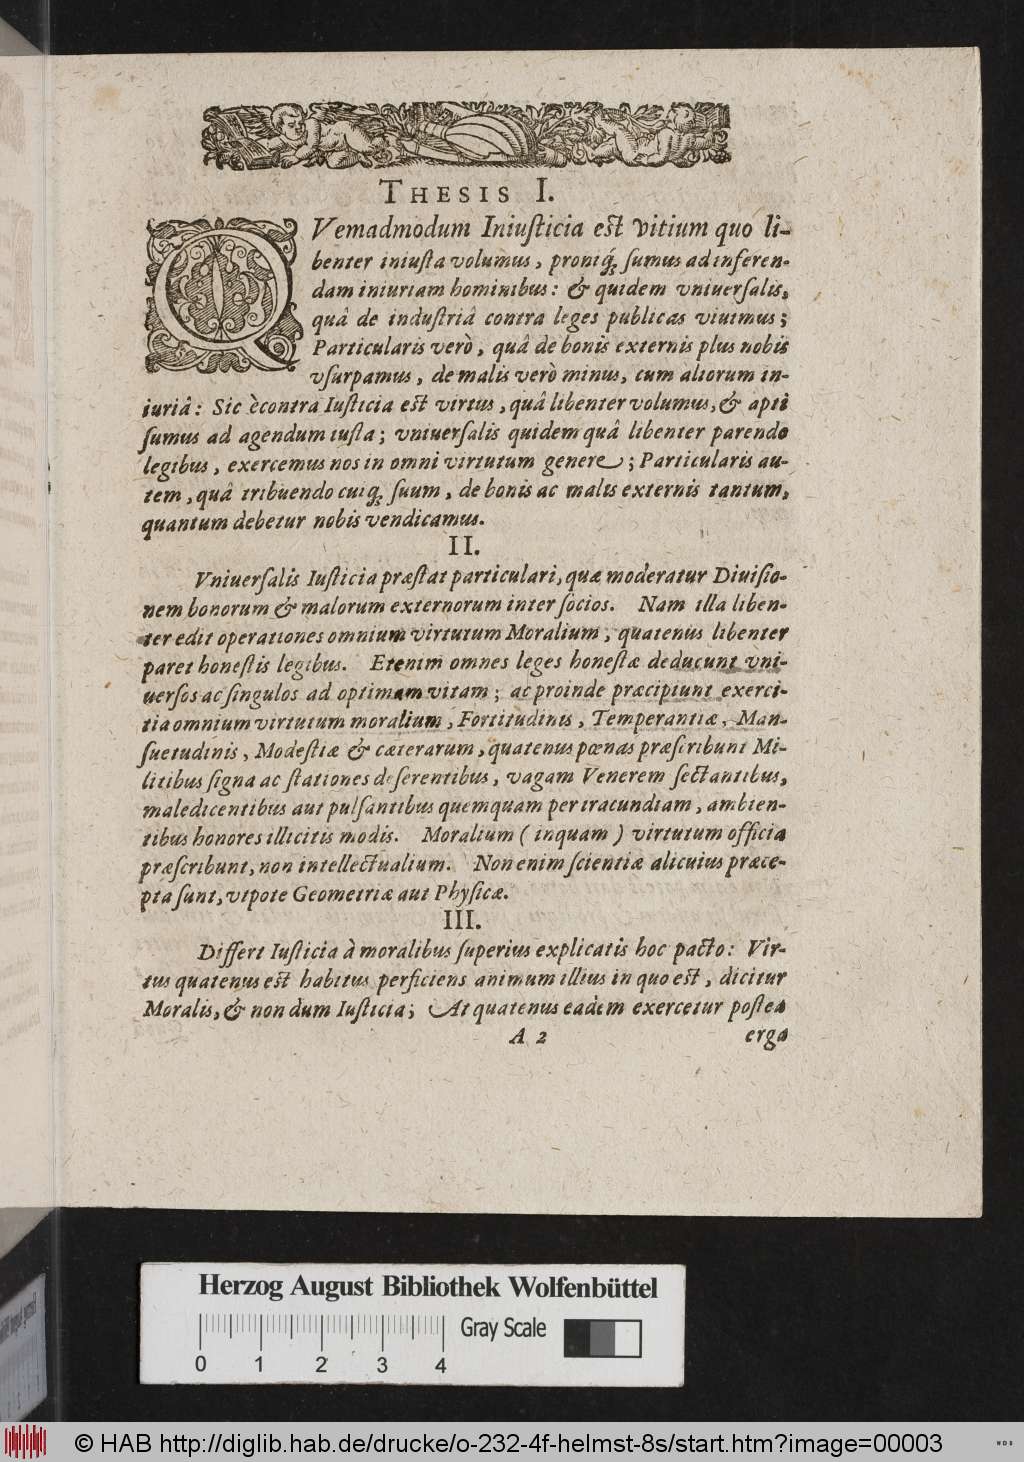 THESIS I.
QVemadmodum Iniusticia est vitium quo li-
benter iniusta volumus, proniq́; sumus ad inferen-
dam iniuriam hominibus: & quidem vniuersalis,
quâ de industriâ contra leges publicas viuimus;
Particularis verò, quâ de bonis externis plus nobis
vsurpamus, de malis verò minus, cum aliorum in-
iuriâ: Sic ècontra Iusticia est virtus, quâ libenter volumus, & apti
sumus ad agendum iusta; vniuersalis quidem quâ libenter parendo
legibus, exercemus nos in omni virtutum genere; Particularis au-
tem, quâ tribuendo cuiq́; suum, de bonis ac malis externis tantum,
quantum debetur nobis vendicamus.
II.
Vniuersalis Iusticia præstat particulari, quæ moderatur Diuisio-
nem bonorum & malorum externorum inter socios. Nam illa liben-
ter edit operationes omnium virtutum Moralium, quatenus libenter
paret honestis legibus. Etenim omnes leges honestæ deducunt vni-
uersos ac singulos ad optimam vitam; ac proinde præcipiunt exerci-
tia omnium virtutum moralium, Fortitudinis, Temperantiæ, Man-
suetudinis, Modestiæ & cæterarum, quatenus pœnas præscribunt Mi-
litibus signa ac stationes deserentibus, vagam Venerem sectantibus,
maledicentibus aut pulsantibus quemquam per iracundiam, ambien-
tibus honores illicitis modis. Moralium ( inquam ) virtutum officia
præscribunt, non intellectualium. Non enim scientiæ alicuius præce-
pta sunt, vtpote Geometriæ aut Physicæ.
III.
Differt Iusticia à moralibus superius explicatis hoc pacto: Vir-
tus quatenus est habitus perficiens animum illius in quo est, dicitur
Moralis, & non dum Iusticia; At quatenus eadem exercetur postea
A 2 erga
Herzog August Bibliothek Wolfenbüttel
Gray Scale
0 1 2 3 4
© HAB http://diglib.hab.de/drucke/o-232-4f-helmst-8s/start.htm?image=00003